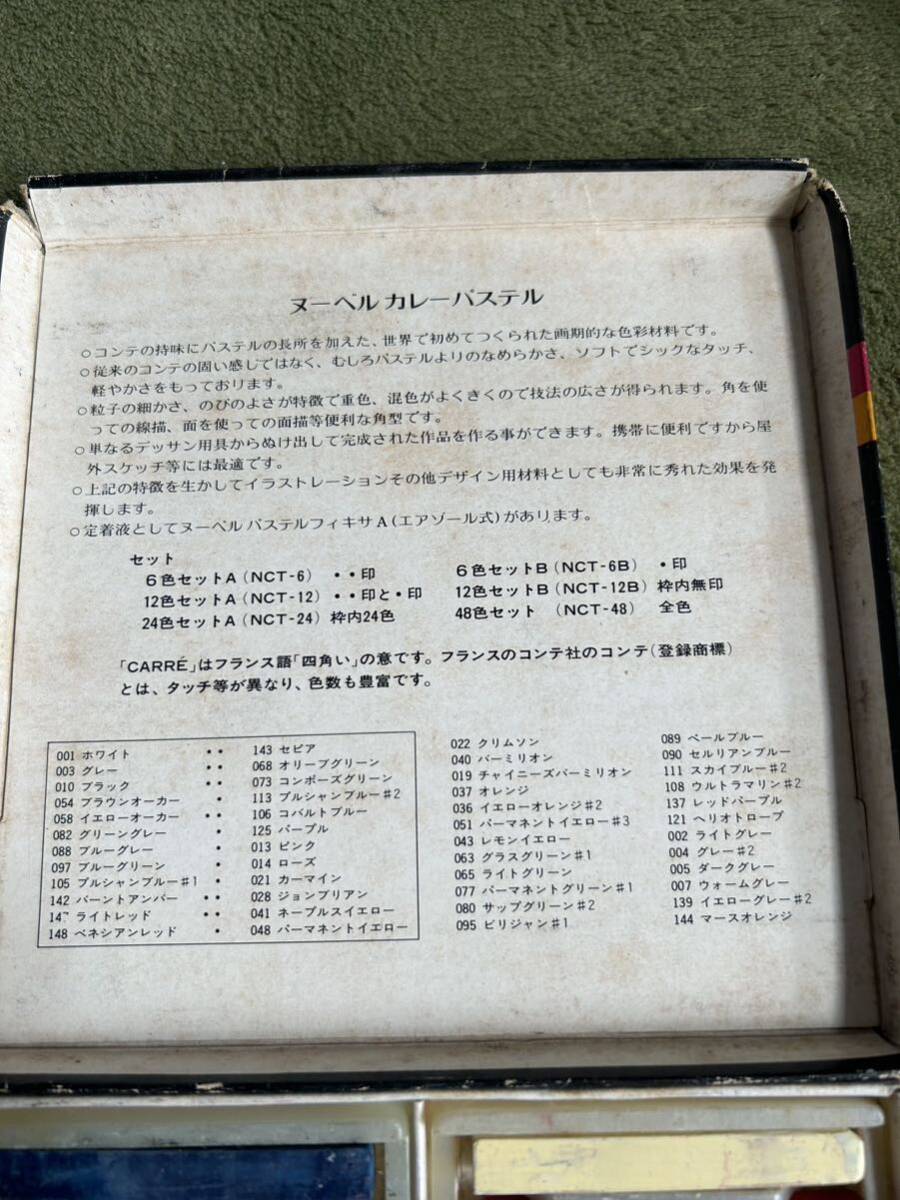 ヌーベル カレーパステル
○コンテの持味にパステルの長所を加えた、世界で初めてつくられた画期的な色彩材料です。
○従来のコンテの固い感じではなく、むしろパステルよりのなめらかさ、ソフトでシックなタッチ、
軽やかさをもっております。
○粒子の細かさ、のびのよさが特徴で重色、混色がよくきくので技法の広さが得られます。角を使
っての線描、面を使っての面描等便利な角型です。
○単なるデッサン用具からぬけ出して完成された作品を作る事ができます。携帯に便利ですから屋
外スケッチ等には最適です。
○上記の特徴を生かしてイラストレーションその他デザイン用材料としても非常に秀れた効果を発
揮します。
○定着液としてヌーベル パステルフィキサA(エアゾール式)があります。
セット
6色セットA(NCT-6) ・・印
12色セットA(NCT-12) ・・印と・印
24色セットA(NCT-24) 枠内24色
6色セットB(NCT-6B) ・印
12色セットB(NCT-12B) 枠内無印
48色セット (NCT-48) 全色
「CARRÉ」はフランス語「四角い」の意です。フランスのコンテ社のコンテ(登録商標)
とは、タッチ等が異なり、色数も豊富です。
001 ホワイト ・・
003 グレー ・・
010 ブラック ・・
054 ブラウンオーカー ・
058 イエローオーカー ・・
082 グリーングレー ・
088 ブルーグレー ・
097 ブルーグリーン ・
105 プルシャンブルー#1 ・
142 バーントアンバー ・・
147 ライトレッド ・・
148 ベネシアンレッド ・
143 セピア
068 オリーブグリーン
073 コンポーズグリーン
113 プルシャンブルー#2
106 コバルトブルー
125 パープル
013 ピンク
014 ローズ
021 カーマイン
028 ジョンブリアン
041 ネープルスイエロー
048 パーマネントイエロー
022 クリムソン
040 バーミリオン
019 チャイニーズバーミリオン
037 オレンジ
036 イエローオレンジ#2
051 パーマネントイエロー#3
043 レモンイエロー
063 グラスグリーン#1
065 ライトグリーン
077 パーマネントグリーン#1
080 サップグリーン#2
095 ビリジャン#1
089 ペールブルー
090 セルリアンブルー
111 スカイブルー#2
108 ウルトラマリン#2
137 レッドパープル
121 ヘリオトロープ
002 ライトグレー
004 グレー#2
005 ダークグレー
007 ウォームグレー
139 イエローグレー#2
144 マースオレンジ